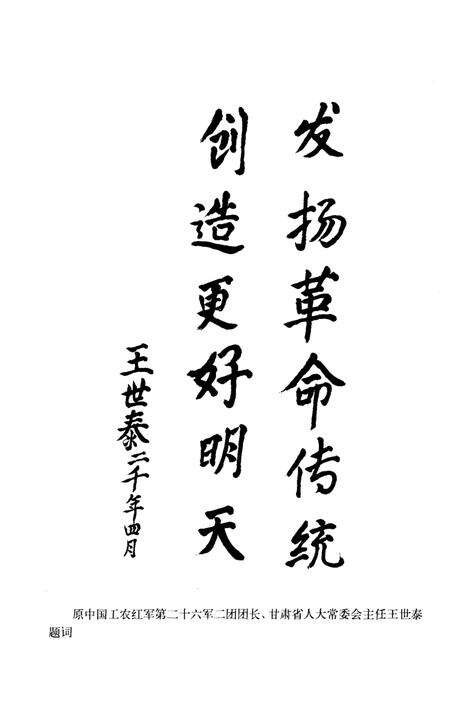 发扬革命传统
创造更好明天
王世泰二千年四月
原中国工农红军第二十六军二团团长、甘肃省人大常委会主任王世泰
题词